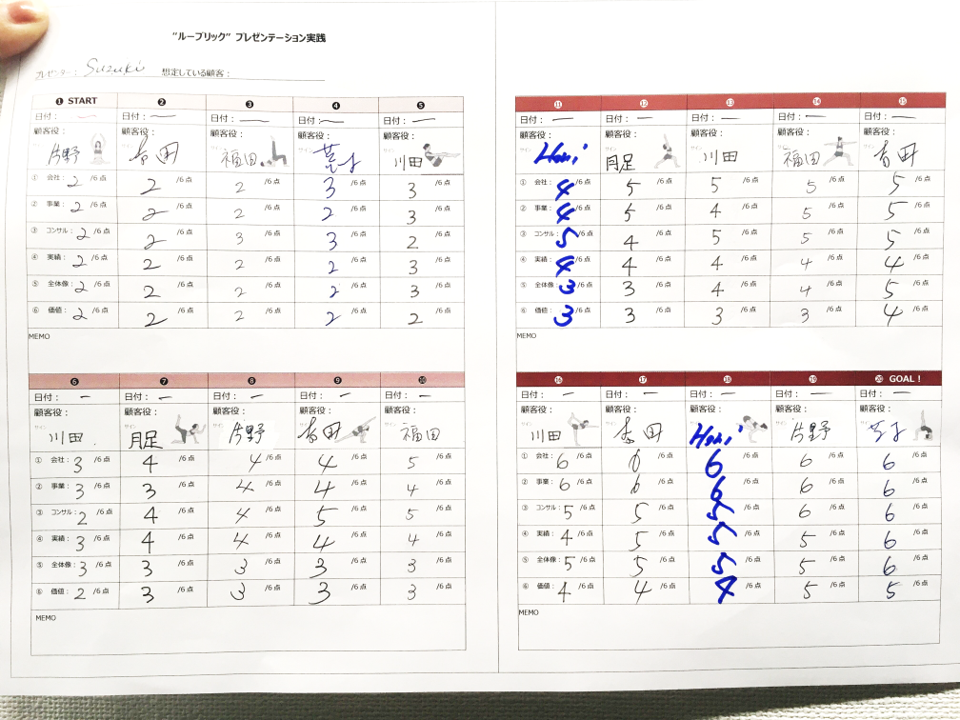 "ルーブリック" プレゼンテーション実践
プレゼンター： Suzuki 想定している顧客：
❶ START ❷ ❸ ❹ ❺
日付： 日付： 日付： 日付： 日付：
顧客役： 顧客役： 顧客役： 顧客役： 顧客役：
片野 吉田 福田 川田
① 会社： 2 /6点 2 /6点 2 /6点 3 /6点 3 /6点
② 事業： 2 /6点 2 /6点 2 /6点 2 /6点 3 /6点
③ コンサル： 2 /6点 2 /6点 3 /6点 3 /6点 2 /6点
④ 実績： 2 /6点 2 /6点 2 /6点 2 /6点 3 /6点
⑤ 全体像： 2 /6点 2 /6点 2 /6点 2 /6点 3 /6点
⑥ 価値： 2 /6点 2 /6点 2 /6点 2 /6点 2 /6点
MEMO
❻ ❼ ❽ ❾ ❿
日付： 日付： 日付： 日付： 日付：
顧客役： 顧客役： 顧客役： 顧客役： 顧客役：
川田 月足 片野 吉田 福田
① 会社： 3 /6点 4 /6点 4 /6点 4 /6点 5 /6点
② 事業： 3 /6点 3 /6点 4 /6点 4 /6点 4 /6点
③ コンサル： 2 /6点 4 /6点 4 /6点 5 /6点 5 /6点
④ 実績： 3 /6点 4 /6点 4 /6点 4 /6点 4 /6点
⑤ 全体像： 3 /6点 3 /6点 3 /6点 3 /6点 3 /6点
⑥ 価値： 2 /6点 3 /6点 3 /6点 3 /6点 3 /6点
MEMO
⓫ ⓬ ⓭ ⓮ ⓯
日付： 日付： 日付： 日付： 日付：
顧客役： 顧客役： 顧客役： 顧客役： 顧客役：
Hori 月足 川田 福田 吉田
① 会社： 4 /6点 5 /6点 5 /6点 5 /6点 5 /6点
② 事業： 4 /6点 5 /6点 4 /6点 5 /6点 5 /6点
③ コンサル： 5 /6点 4 /6点 5 /6点 5 /6点 5 /6点
④ 実績： 4 /6点 4 /6点 4 /6点 4 /6点 4 /6点
⑤ 全体像： 3 /6点 3 /6点 4 /6点 4 /6点 5 /6点
⑥ 価値： 3 /6点 3 /6点 3 /6点 3 /6点 4 /6点
MEMO
⓰ ⓱ ⓲ ⓳ ⓴ GOAL！
日付： 日付： 日付： 日付： 日付：
顧客役： 顧客役： 顧客役： 顧客役： 顧客役：
川田 吉田 Hori 片野
① 会社： 6 /6点 6 /6点 6 /6点 6 /6点 6 /6点
② 事業： 6 /6点 6 /6点 6 /6点 6 /6点 6 /6点
③ コンサル： 5 /6点 5 /6点 5 /6点 6 /6点 6 /6点
④ 実績： 4 /6点 5 /6点 5 /6点 5 /6点 6 /6点
⑤ 全体像： 5 /6点 5 /6点 5 /6点 5 /6点 6 /6点
⑥ 価値： 4 /6点 4 /6点 4 /6点 5 /6点 5 /6点
MEMO